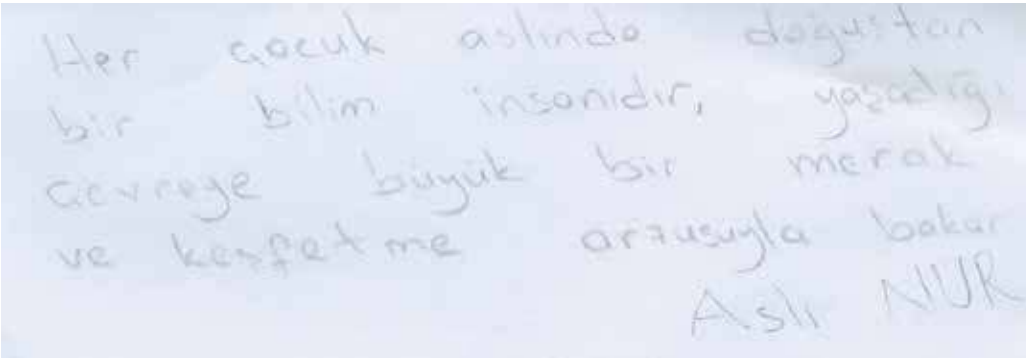 Her çocuk aslında doğuştan
bir bilim insanıdır, yaşadığı
çevreye büyük bir merak
ve keşfetme arzusuyla bakar
Aslı NUR